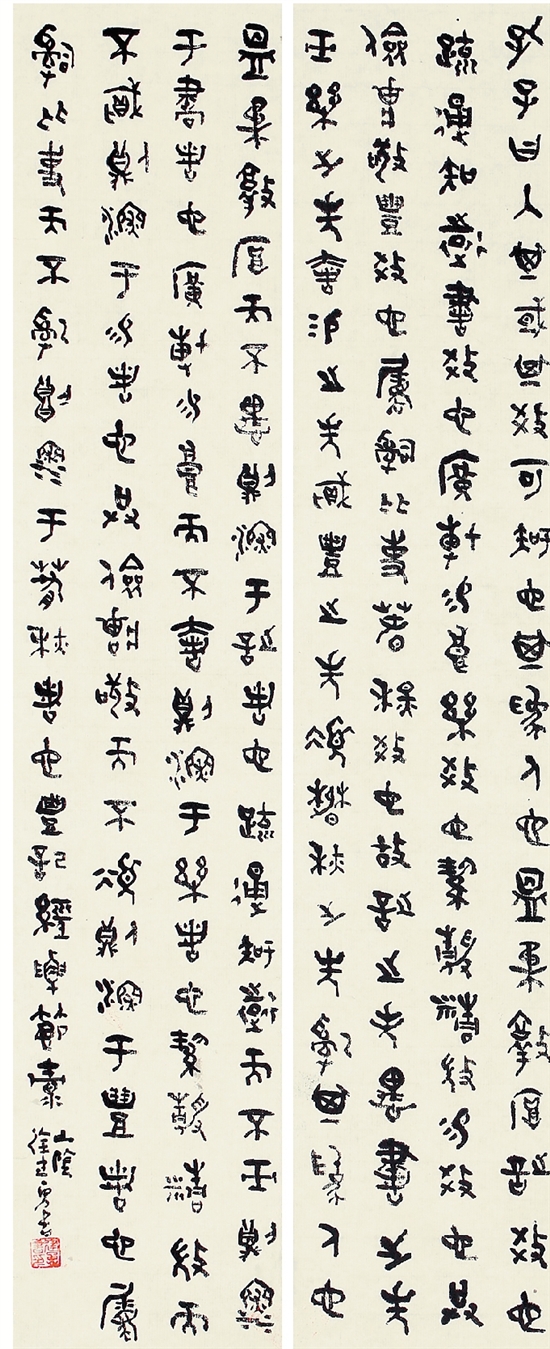 孔子曰入其國其教可知也其為人也溫柔敦厚詩教也
疏通知遠書教也廣博易良樂教也絜靜精微易教也恭
儉莊敬禮教也屬辭比事春秋教也故詩之失愚書之失
誣樂之失奢易之失賊禮之失煩春秋之失亂其為人也
溫柔敦厚而不愚則深于詩者也疏通知遠而不誣則深
于書者也廣博易良而不奢則深于樂者也絜靜精微而
不賊則深于易者也恭儉莊敬而不煩則深于禮者也屬
辭比事而不亂則深于春秋者也禮記經解節
山陰
徐